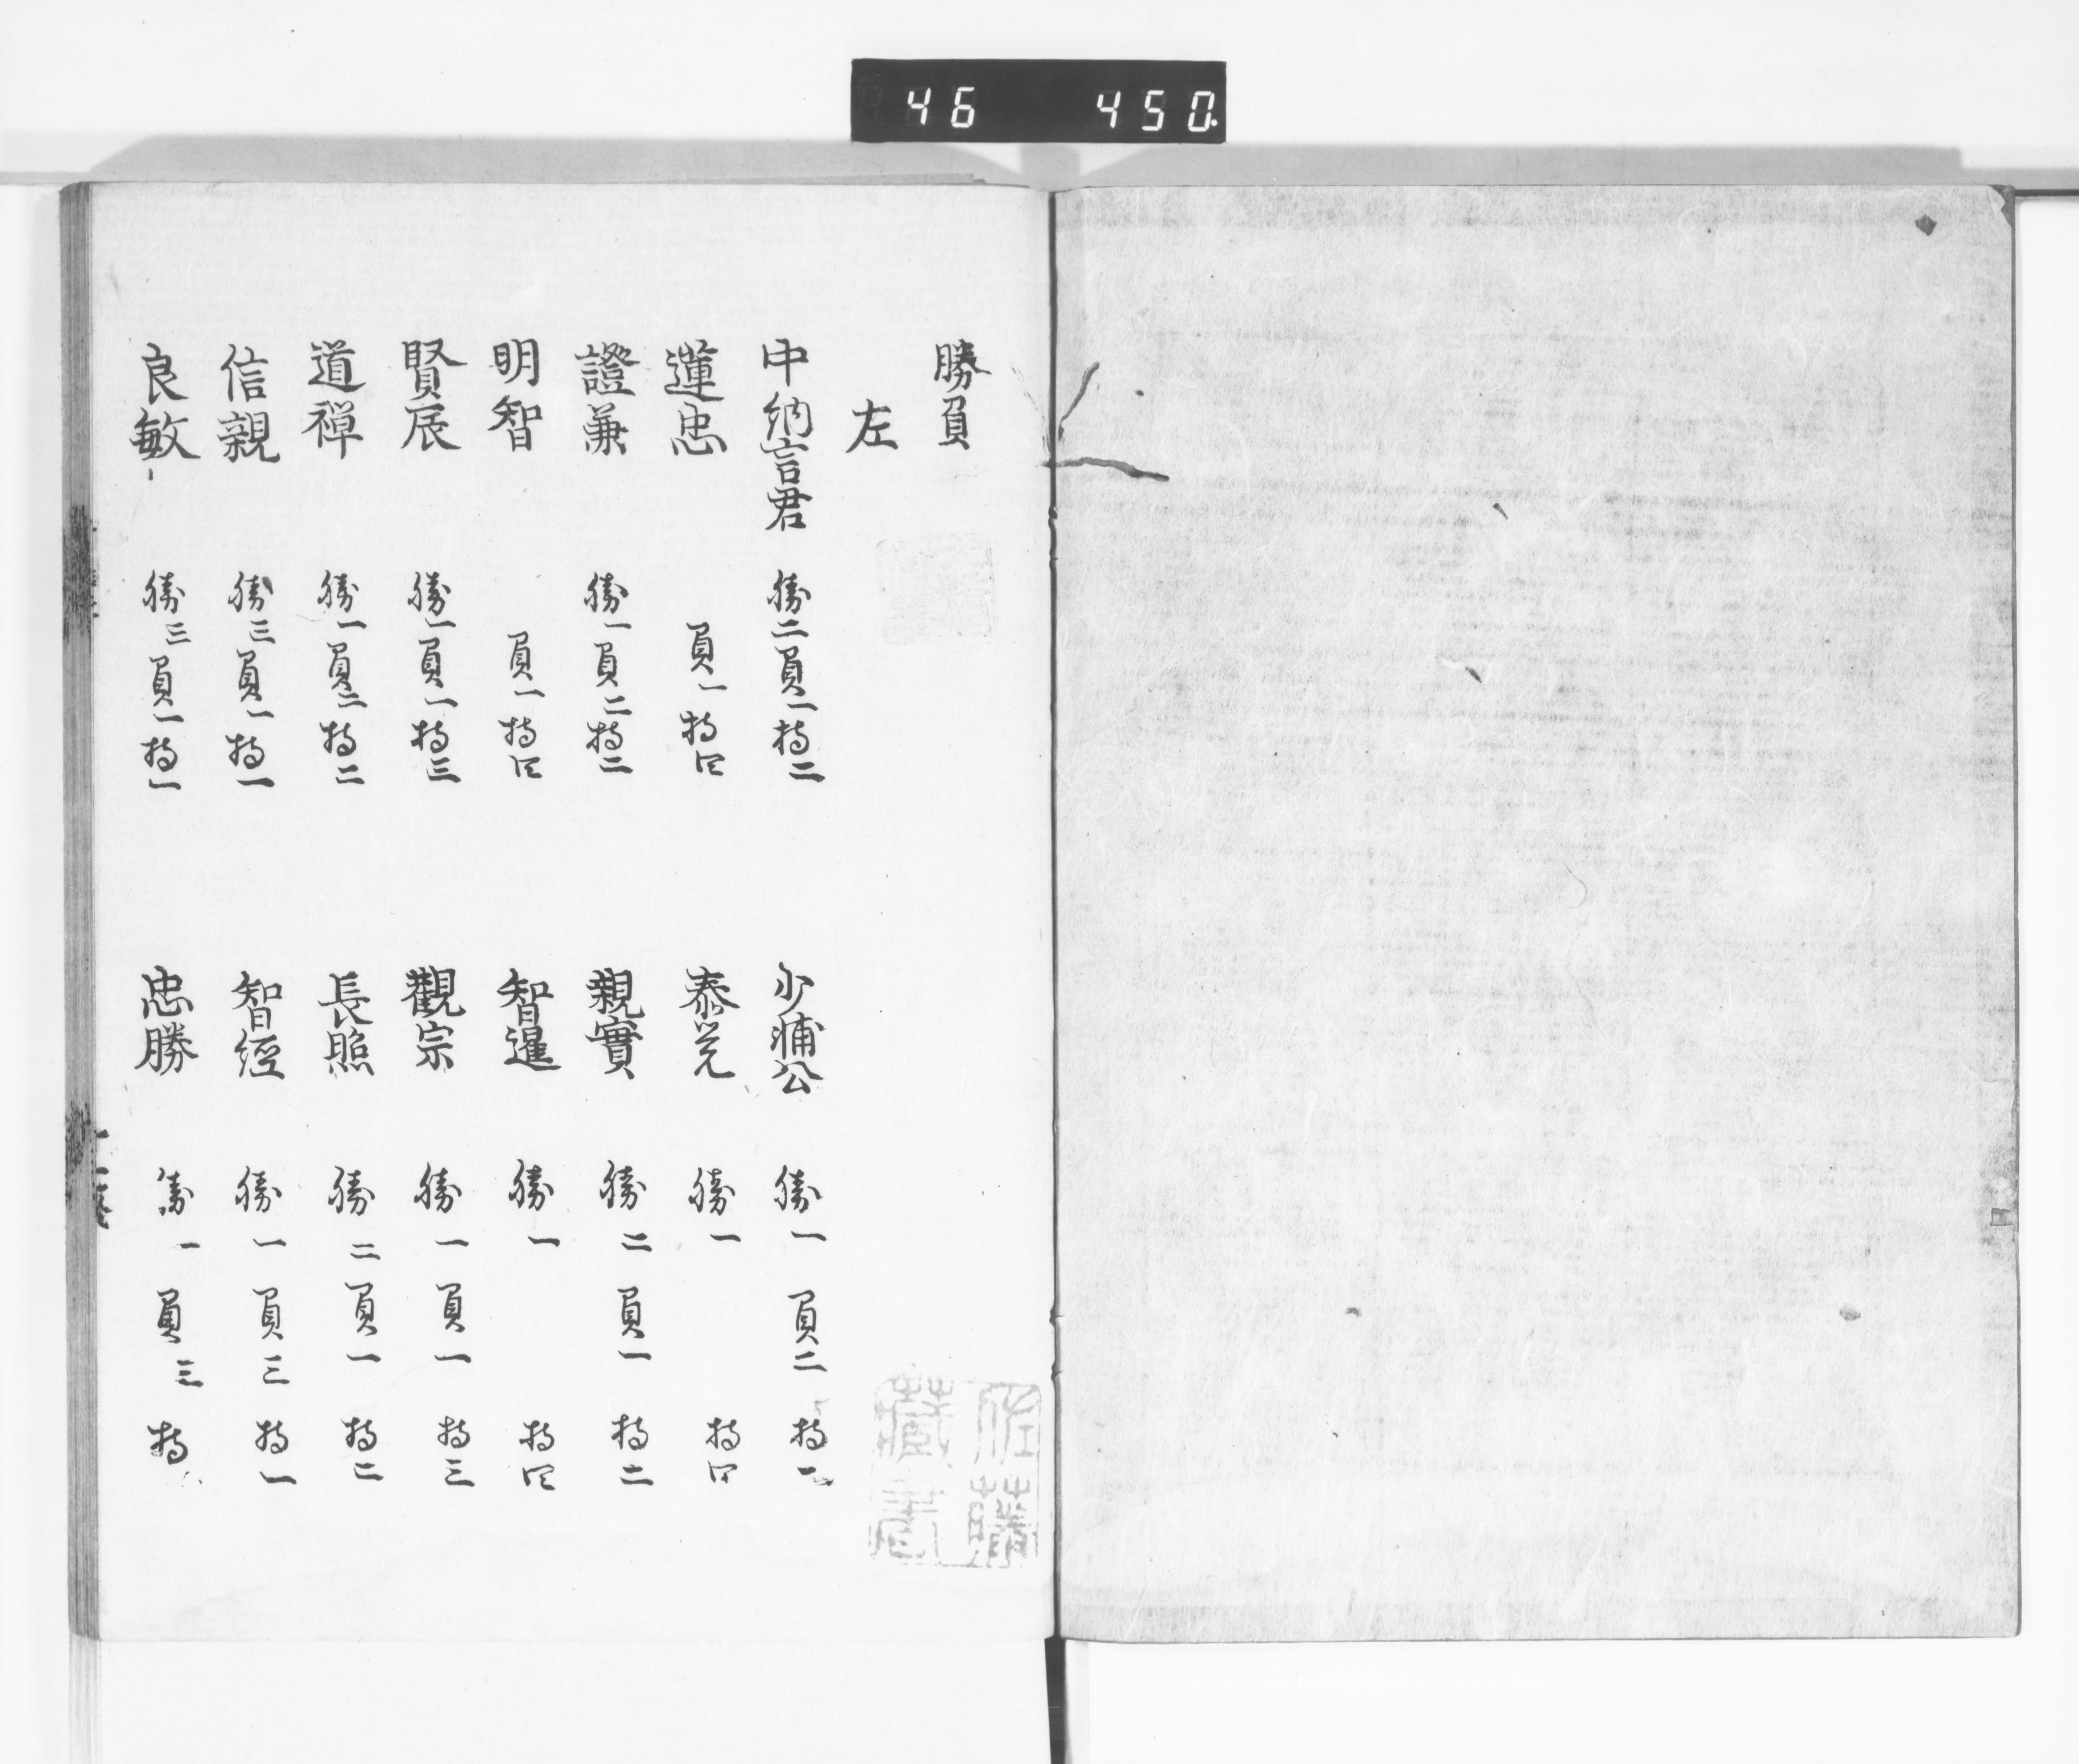 46 450
勝負
左
中納言君 勝二負一持二
蓮忠 負一持四
證兼 勝一負二持二
明智 負一持四
賢辰 勝一負一持三
道禅 勝一負二持二
信親 勝三負一持一
良敏 勝三負一持一
少輔公 勝一 負二 持二
泰覚 勝一 持四
親實 勝二 負一 持二
智暹 勝一 持四
觀宗 勝一 負一 持三
長照 勝二 負一 持二
智經 勝一 負三 持一
忠勝 勝一 負三 持
佐藤
藏書